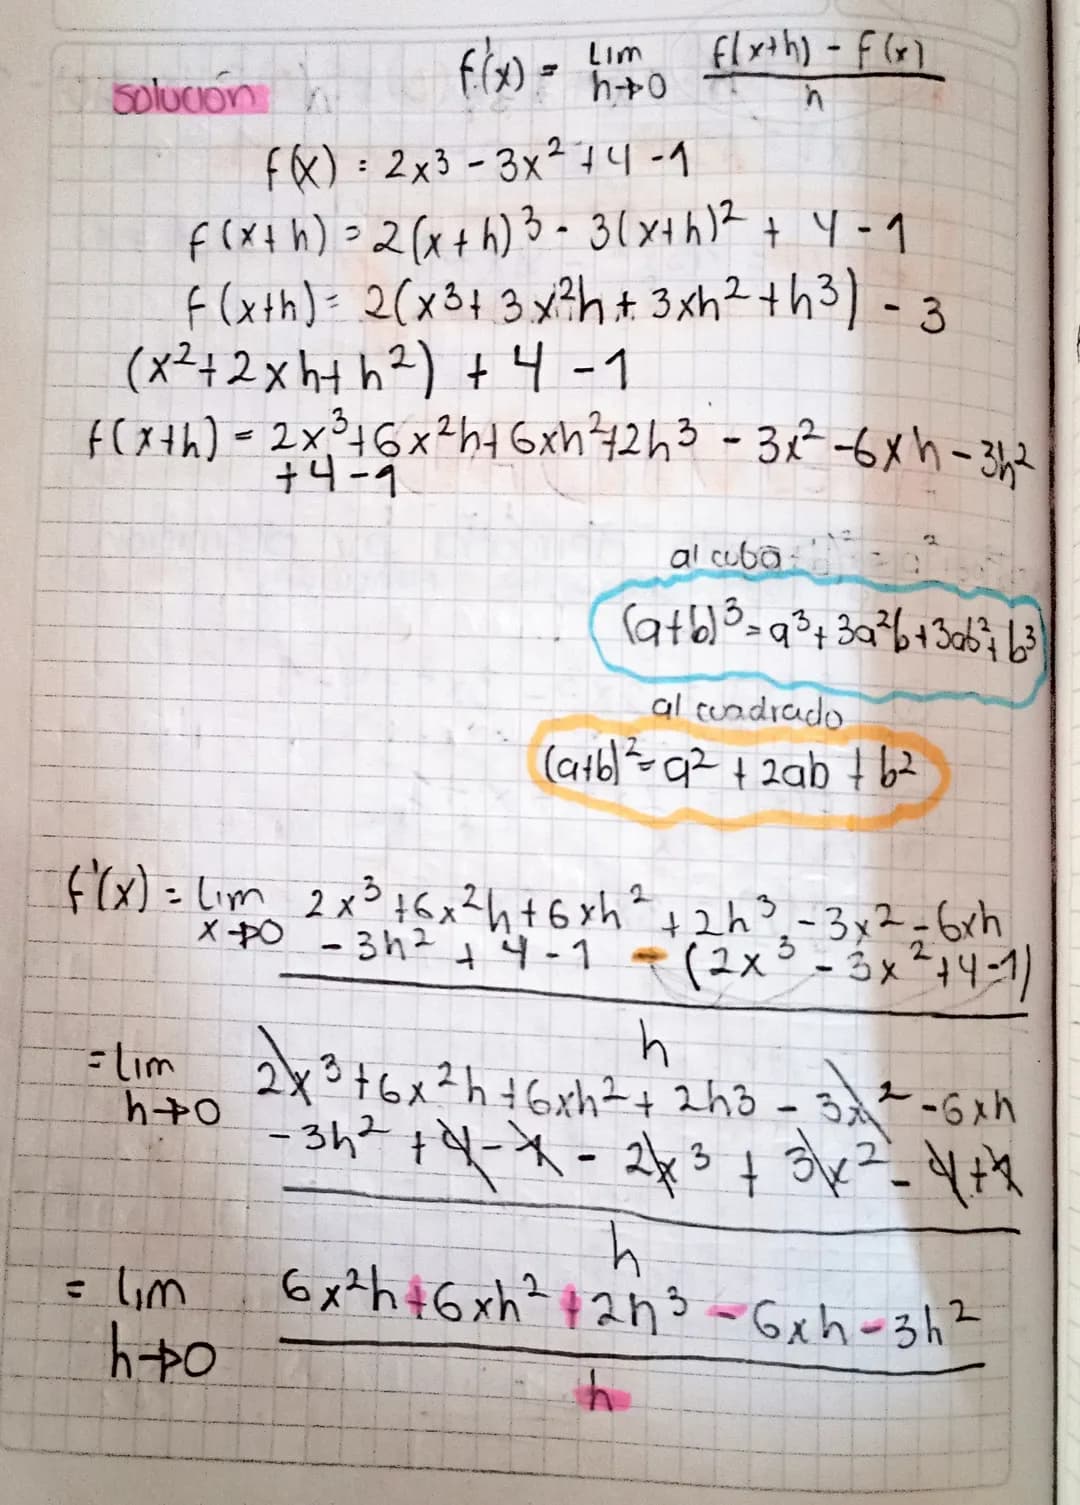 solución
f'(x) = lim h→0 f(x+h) - f(x) / h
f(x) = 2x³ - 3x² + 4 - 1
f(x+h) = 2(x+h)³ - 3(x+h)² + 4 - 1
f(x+h) = 2(x³ + 3x²h + 3xh² + h³) - 3
(x² + 2xh + h²) + 4 - 1
f(x+h) = 2x³ + 6x²h + 6xh² + 2h³ - 3x² - 6xh - 3h²
+ 4 - 1
al cubo
(a+b)³ = a³ + 3a²b + 3ab² + b³
al cuadrado
(a+b)² = a² + 2ab + b²
f'(x) = lim x→0 2x³ + 6x²h + 6xh² + 2h³ - 3x² - 6xh
- 3h² + 4 - 1 - (2x³ - 3x² + 4 - 1)
h
= lim h→0 2x³ + 6x²h + 6xh² + 2h3 - 3x² - 6xh
- 3h² + 4 - 1 - 2x³ + 3x² - 4 + 1
h
= lim h→0 6x²h + 6xh² + 2h³ - 6xh - 3h²
h